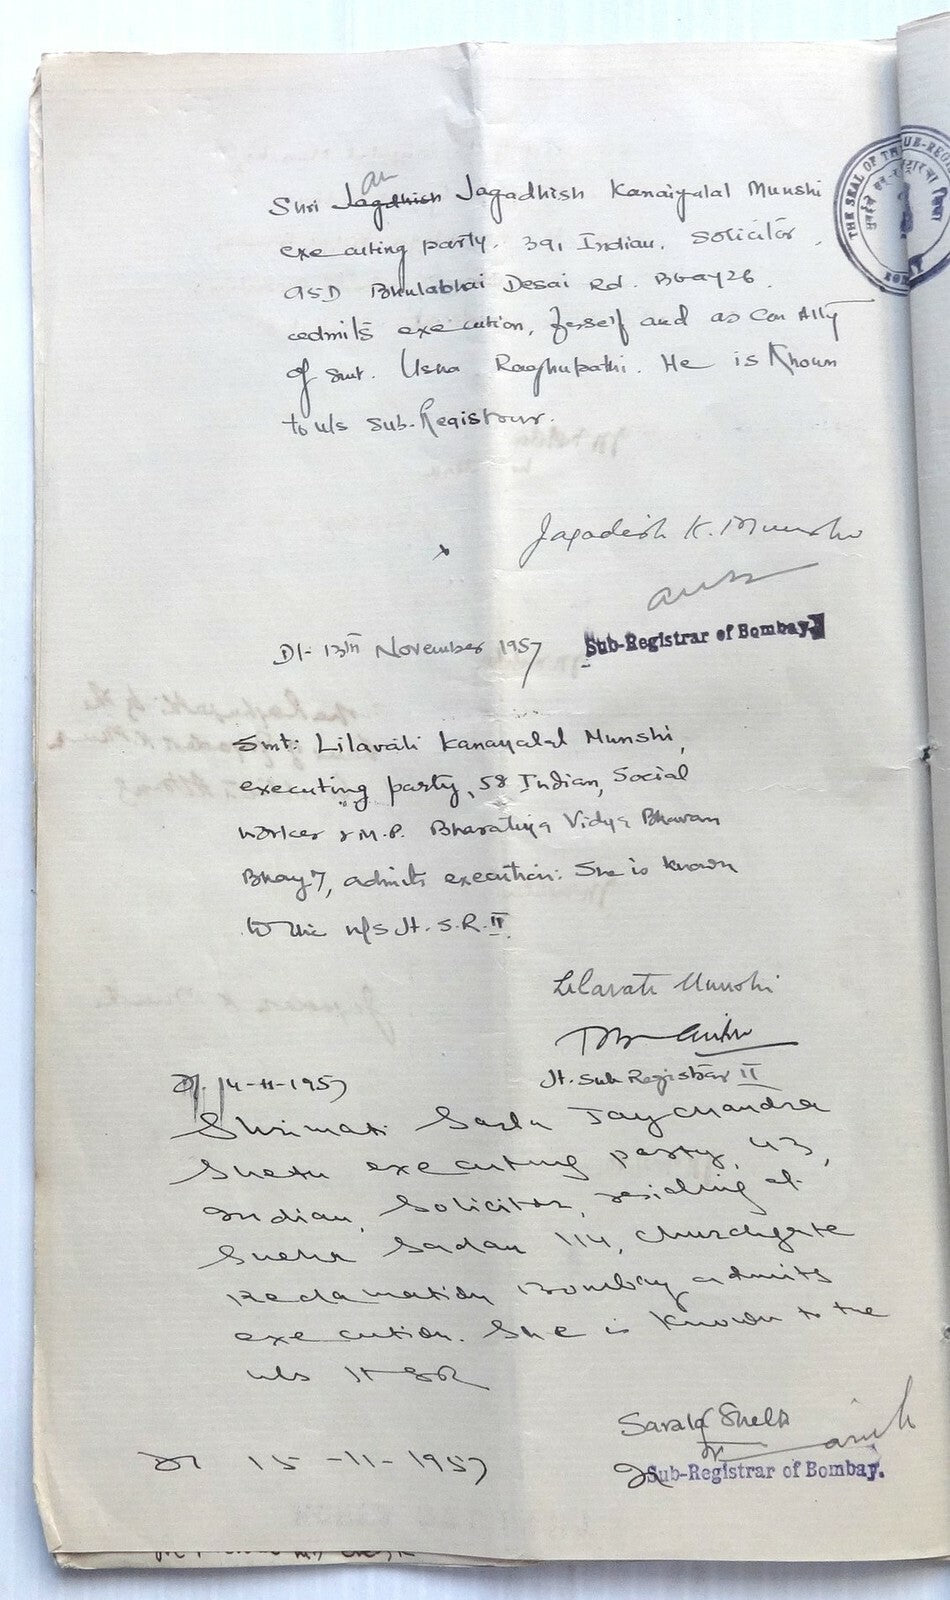 Shri Jagdhish Jagadhish Kanaiyalal Munshi
executing party. 39, Indian. Solicitor,
95D Bhulabhai Desai Rd. Bbay 26.
admits execution, for self and as Con Atty
of Smt. Usha Raghupathi. He is Known
to u/s Sub-Registrar.
THE SEAL OF THE SUB-REG
Jagadish K. Munshi
Dt- 13th November 1957
Sub-Registrar of Bombay
Smt: Lilavati Kanayalal Munshi,
executing party, 58 Indian, Social
worker & M.P. Bharatiya Vidya Bhavan
Bbay 7, admits execution. She is known
to the u/s Jt. S.R. II
Lilavati Munshi
Jt. Sub Registrar II
Dt. 14-11-1957
Shrimati Sarla Jaychandra
Sheth executing party, 43,
Indian, Solicitor, residing at
Sneha Sadan 114, Churchgate
Reclamation Bombay admits
execution. She is known to the
u/s Jt SR
Sarala Sheth
Dt 15-11-1957
Sub-Registrar of Bombay.